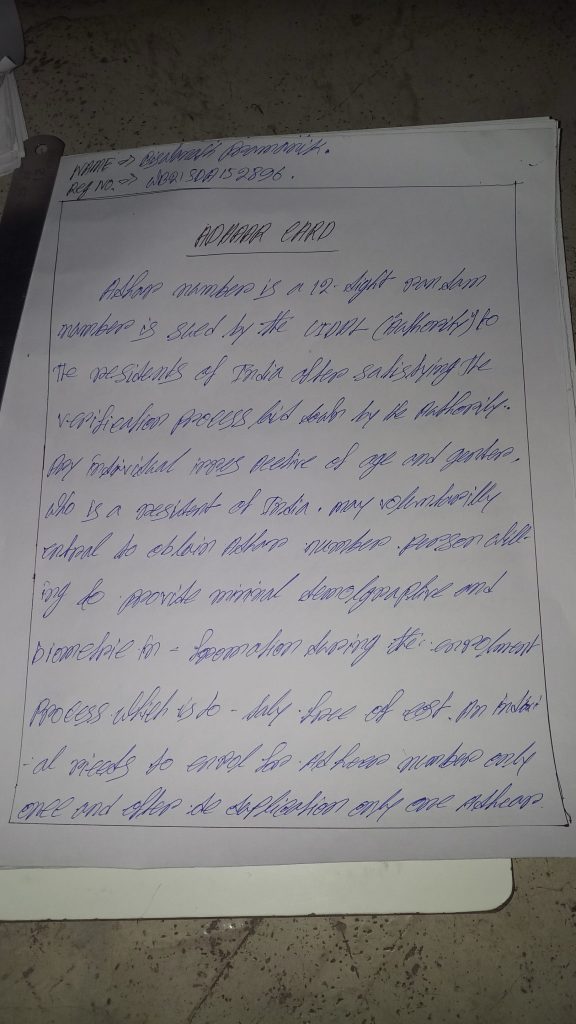 NAME → Pramanik.
Reg NO. → WB21SDA152896.
ADHAR CARD
Adhar number is a 12- dight randam
number is sued by the UIDAI ("authority") to
the residents of India after satisfying the
verification process laid down by the Authority.
Any individual irres pective of age and gender,
who is a resident of India. may voluntarilly
to obtain Adhar number person will-
ing to provide minimal demolgraphive and
biometric in - formation during the enrolment
Process which is to - tuly free of cost. An indivi
-al needs to enrol for Adhaar number only
once and after de duplication only one Adhaar.